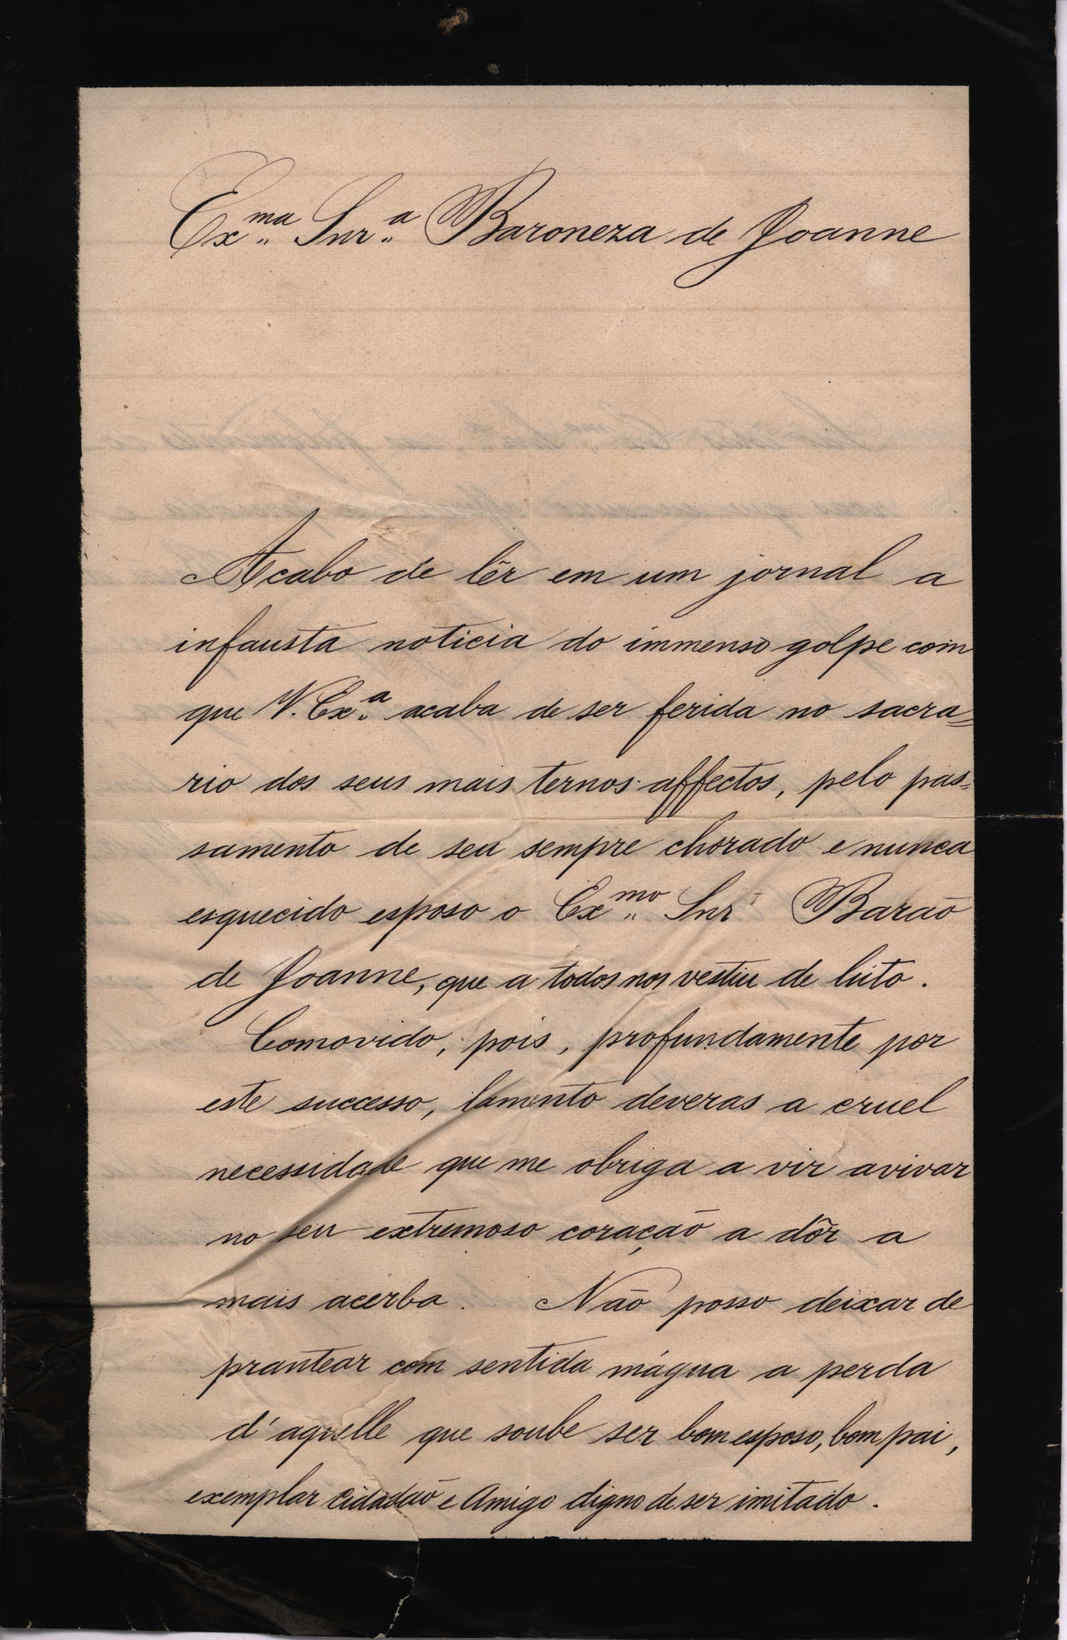 Ex.ma Snr.a Baroneza de Joanne
Acabo de lêr em um jornal a
infausta noticia do immenso golpe com
que V. Ex.a acaba de ser ferida no sacra=
rio dos seus mais ternos affectos, pelo pas=
samento de seu sempre chorado e nunca
esquecido esposo o Ex.mo Snr Barão
de Joanne, que a todos nos vestiu de luto.
Comovido, pois, profundamente por
este successo, lamento deveras a cruel
necessidade que me obriga a vir avivar
no seu extremoso coração a dôr a
mais acerba. Não posso deixar de
prantear com sentida mágua a perda
d'aquelle que soube ser bom esposo, bom pai,
exemplar Cidadão e Amigo digno de ser imitado.